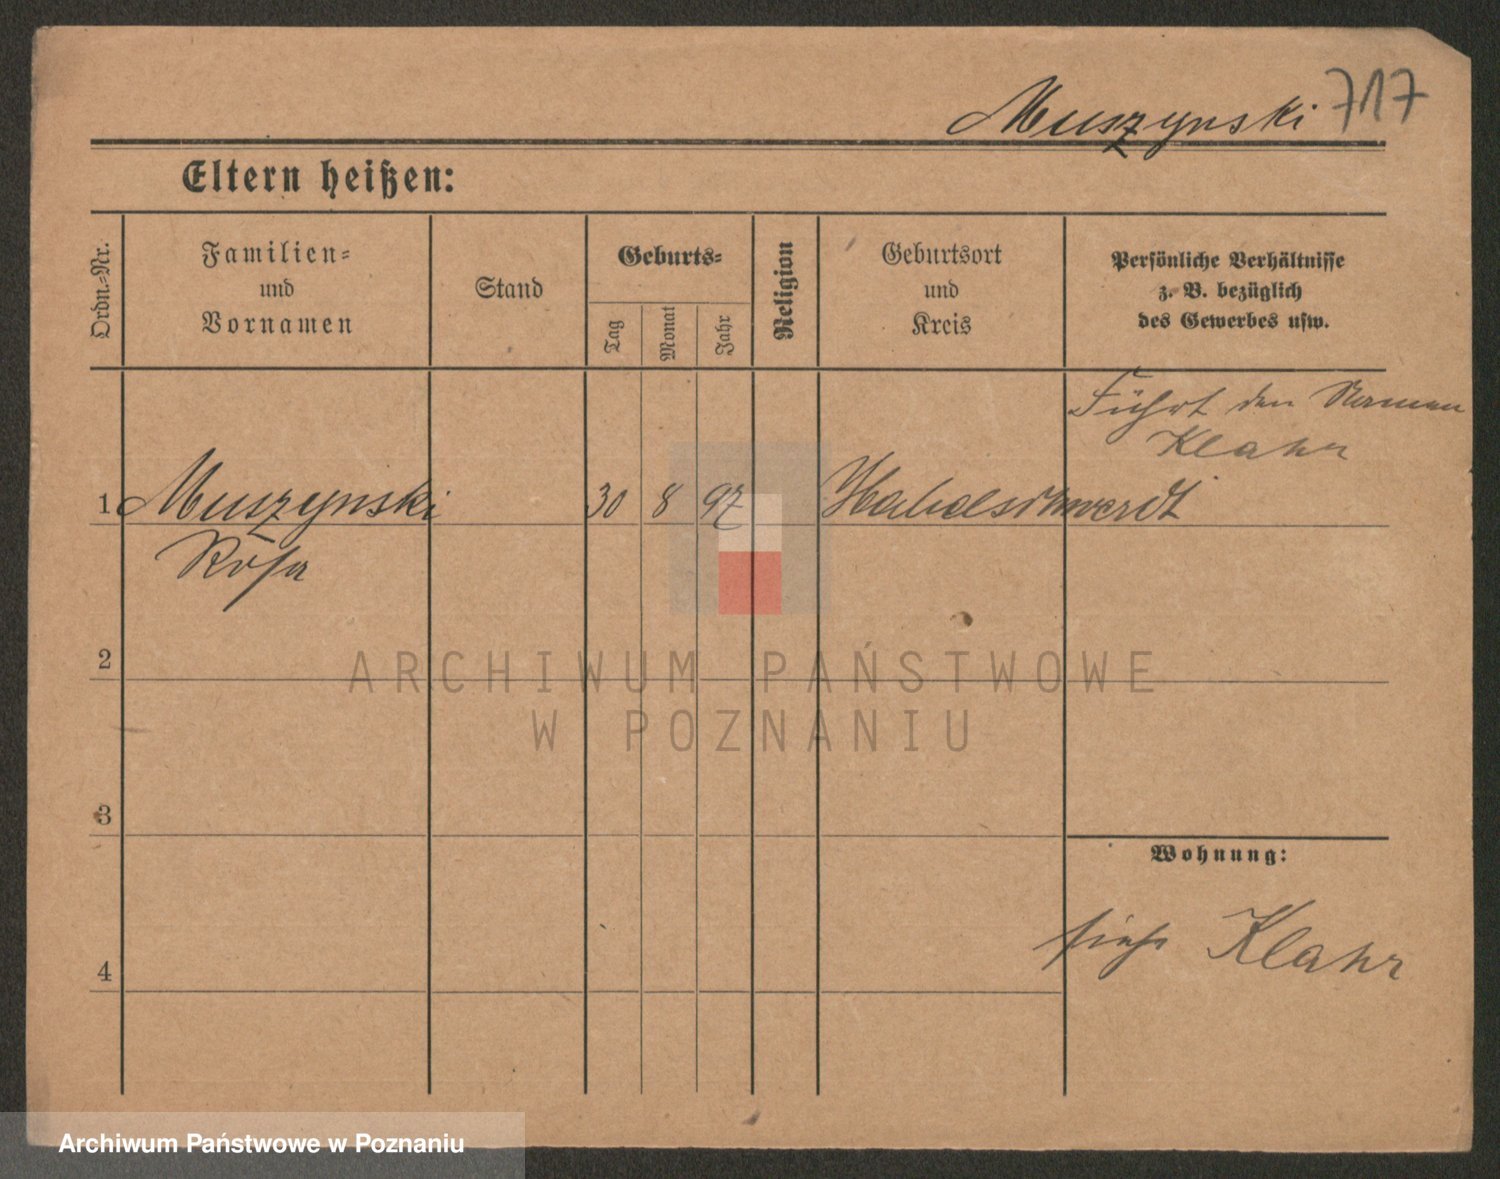 Muszynski 717
Eltern heißen:
Ordn.-Nr.
Familien-
und
Vornamen
Stand
Geburts-
Tag
Monat
Jahr
Religion
Geburtsort
und
Kreis
Persönliche Verhältnisse
z. B. bezüglich
des Gewerbes usw.
Führt den Namen
Klahr
1 Muszynski 30 8 97 Habelschwerdt
Rosa
2
ARCHIWUM PAŃSTWOWE
W POZNANIU
3
Wohnung:
siehe Klahr
4
Archiwum Państwowe w Poznaniu